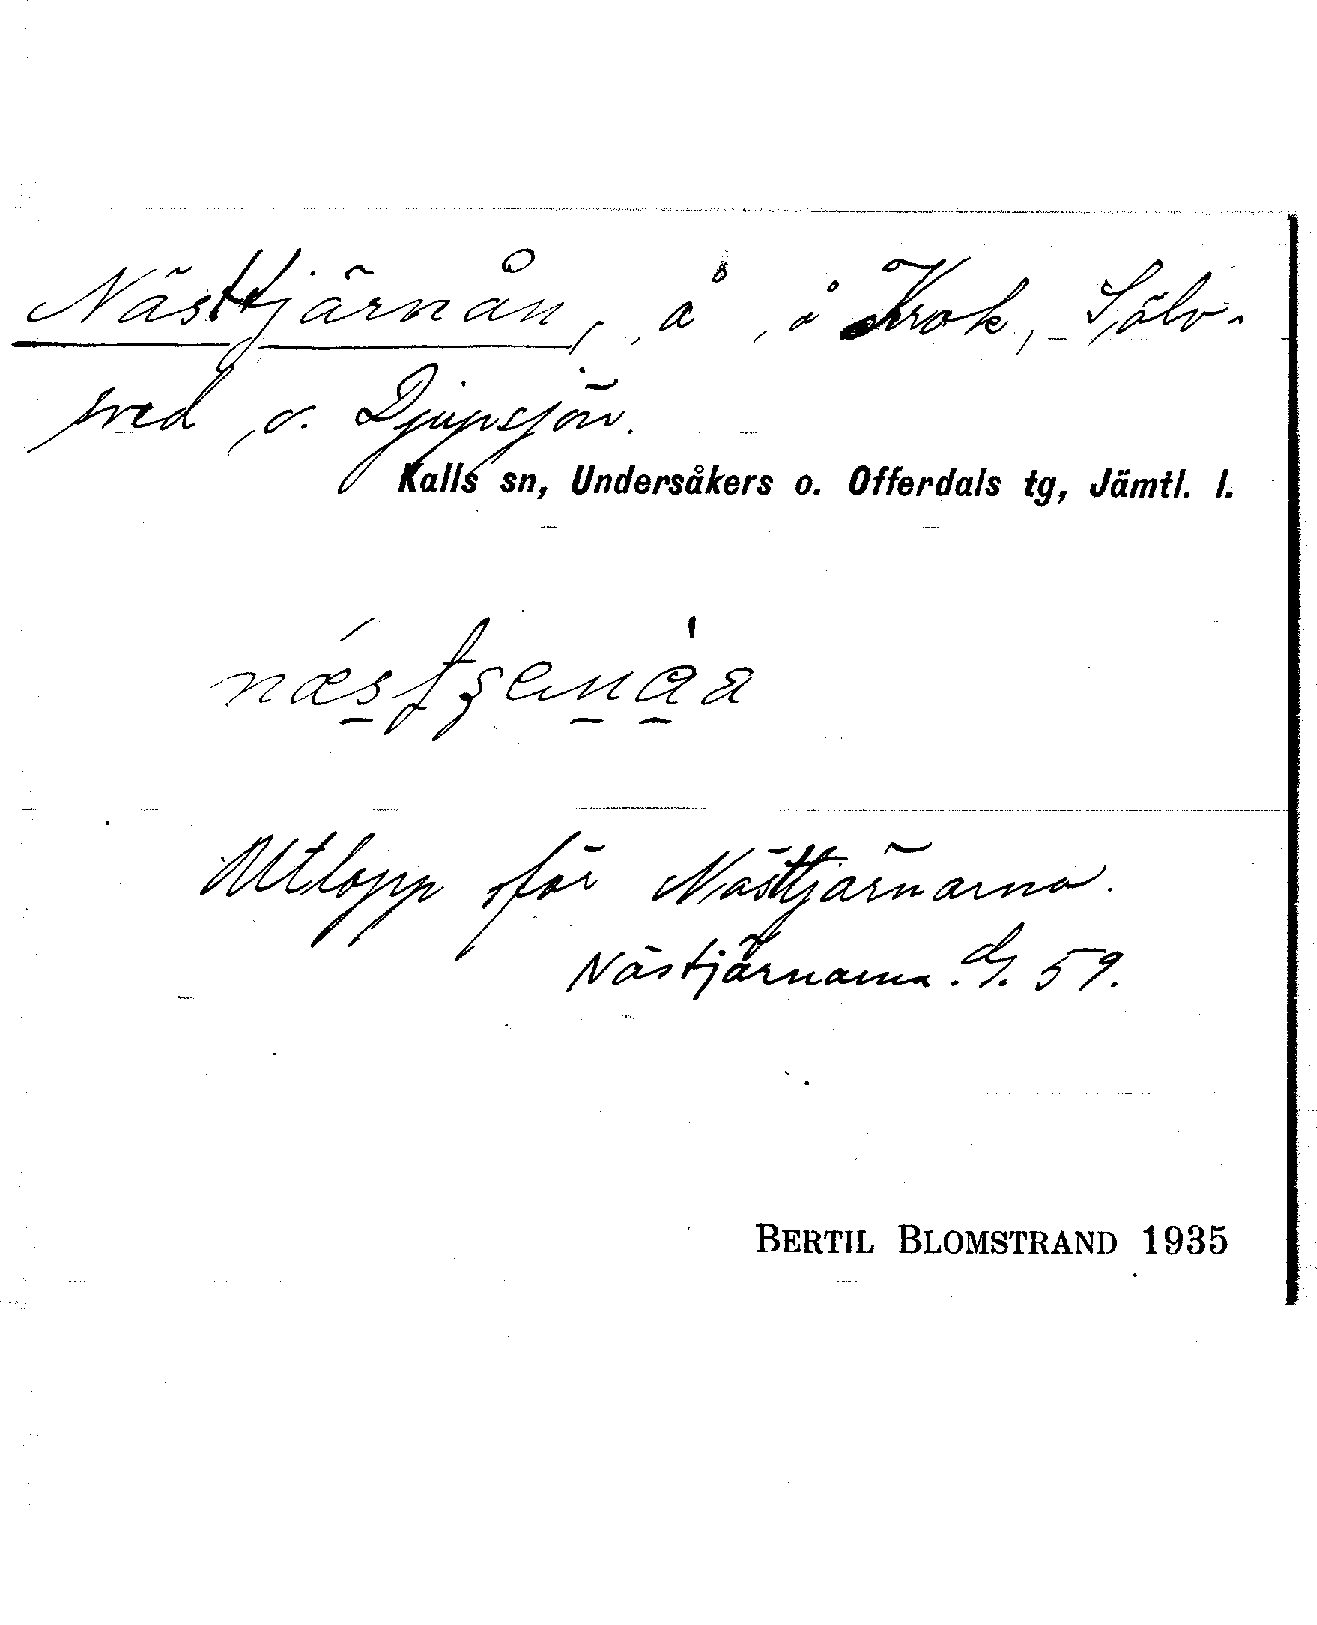 Nästtjärnån, å, i Krok, Sölv-
sved o. Djupsjön.
Kalls sn, Undersåkers o. Offerdals tg, Jämtl. l.
Utlopp för Nästtjärnarna.
Nästjärnarna. G. 59.
BERTIL BLOMSTRAND 1935